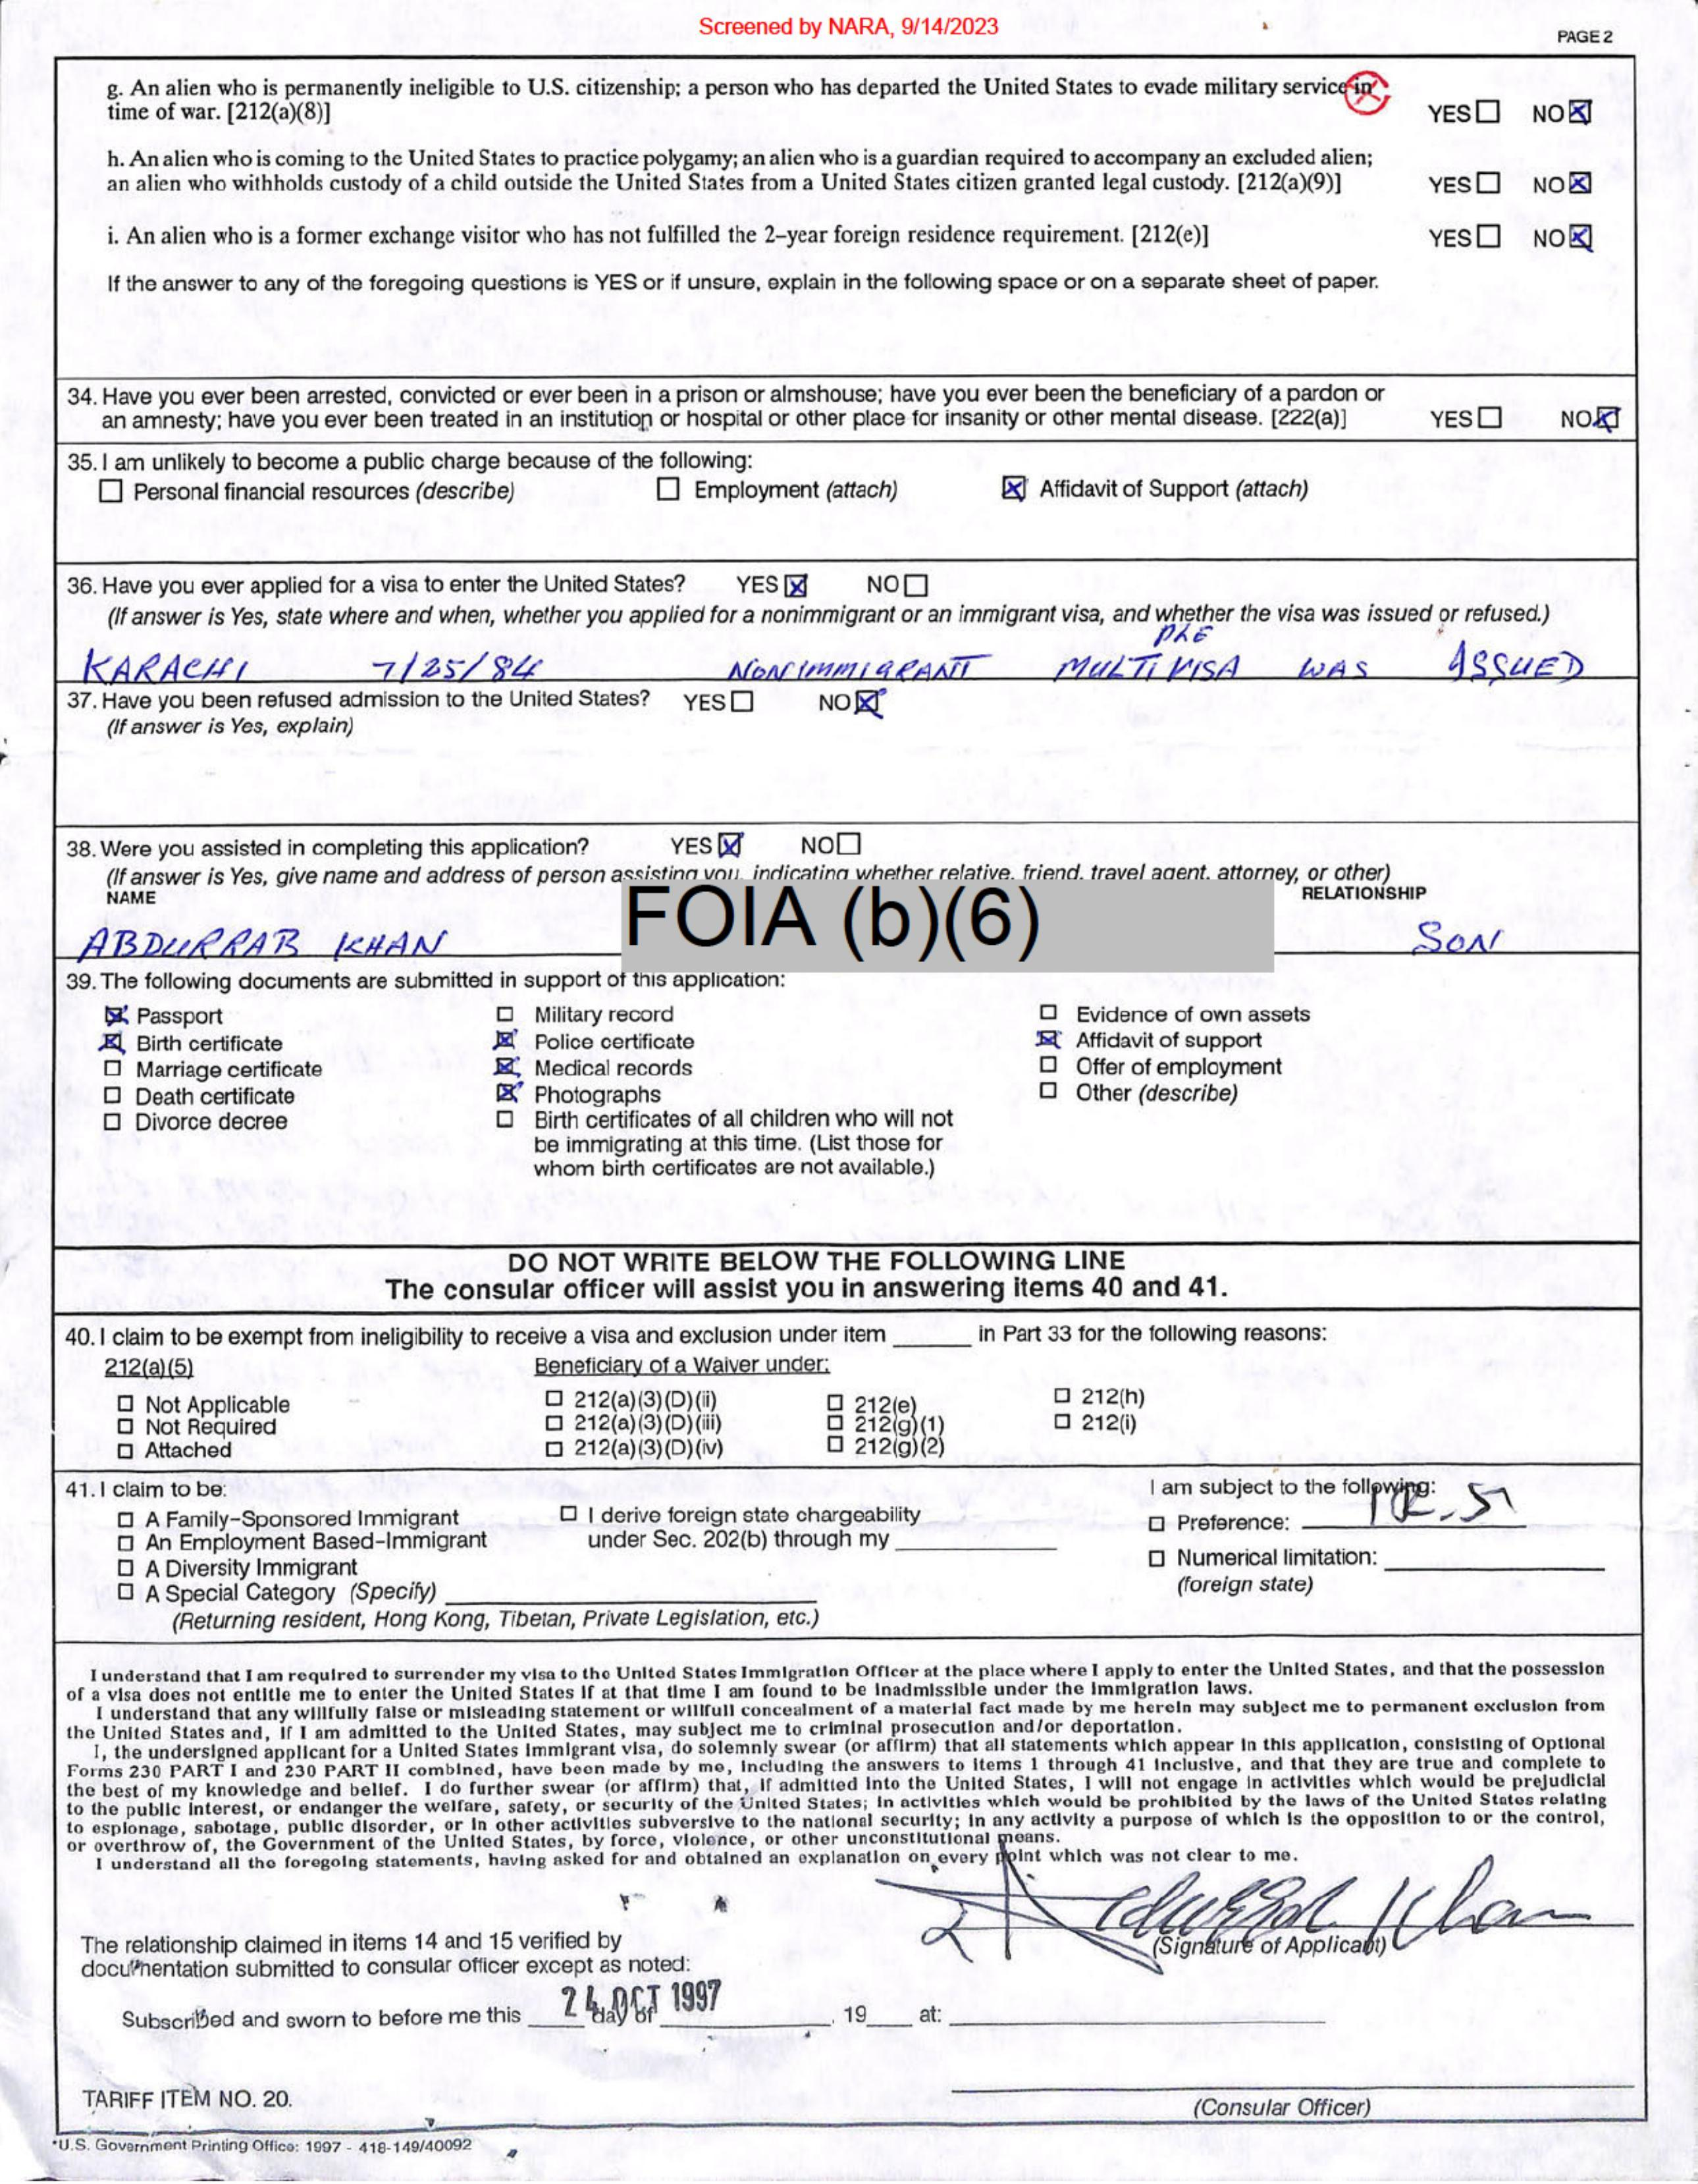 Screened by NARA, 9/14/2023
PAGE 2
g. An alien who is permanently ineligible to U.S. citizenship; a person who has departed the United States to evade military service in
time of war. [212(a)(8)]
YES☐ NO☒
h. An alien who is coming to the United States to practice polygamy; an alien who is a guardian required to accompany an excluded alien;
an alien who withholds custody of a child outside the United States from a United States citizen granted legal custody. [212(a)(9)]
YES☐ NO☒
i. An alien who is a former exchange visitor who has not fulfilled the 2-year foreign residence requirement. [212(e)]
YES☐ NO☒
If the answer to any of the foregoing questions is YES or if unsure, explain in the following space or on a separate sheet of paper.
34. Have you ever been arrested, convicted or ever been in a prison or almshouse; have you ever been the beneficiary of a pardon or
an amnesty; have you ever been treated in an institution or hospital or other place for insanity or other mental disease. [222(a)]
YES☐ NO☒
35. I am unlikely to become a public charge because of the following:
☐ Personal financial resources (describe) ☐ Employment (attach) ☒ Affidavit of Support (attach)
36. Have you ever applied for a visa to enter the United States? YES☒ NO☐
(If answer is Yes, state where and when, whether you applied for a nonimmigrant or an immigrant visa, and whether the visa was issued or refused.)
KARACHI 7/25/84 NONIMMIGRANT MULTI VISA WAS ISSUED
37. Have you been refused admission to the United States? YES☐ NO☒
(If answer is Yes, explain)
38. Were you assisted in completing this application? YES☒ NO☐
(If answer is Yes, give name and address of person assisting you, indicating whether relative, friend, travel agent, attorney, or other)
NAME RELATIONSHIP
FOIA (b)(6)
ABDURRAB KHAN SON
39. The following documents are submitted in support of this application:
☒ Passport ☐ Military record ☐ Evidence of own assets
☒ Birth certificate ☒ Police certificate ☒ Affidavit of support
☐ Marriage certificate ☒ Medical records ☐ Offer of employment
☐ Death certificate ☒ Photographs ☐ Other (describe)
☐ Divorce decree ☐ Birth certificates of all children who will not
be immigrating at this time. (List those for
whom birth certificates are not available.)
DO NOT WRITE BELOW THE FOLLOWING LINE
The consular officer will assist you in answering items 40 and 41.
40. I claim to be exempt from ineligibility to receive a visa and exclusion under item ______ in Part 33 for the following reasons:
212(a)(5) Beneficiary of a Waiver under:
☐ Not Applicable ☐ 212(a)(3)(D)(ii) ☐ 212(e) ☐ 212(h)
☐ Not Required ☐ 212(a)(3)(D)(iii) ☐ 212(g)(1) ☐ 212(i)
☐ Attached ☐ 212(a)(3)(D)(iv) ☐ 212(g)(2)
41. I claim to be: I am subject to the following:
☐ A Family-Sponsored Immigrant ☐ I derive foreign state chargeability ☐ Preference: IR-5
☐ An Employment Based-Immigrant under Sec. 202(b) through my ______
☐ A Diversity Immigrant ☐ Numerical limitation: ______
☐ A Special Category (Specify) ______ (foreign state)
(Returning resident, Hong Kong, Tibetan, Private Legislation, etc.)
I understand that I am required to surrender my visa to the United States Immigration Officer at the place where I apply to enter the United States, and that the possession
of a visa does not entitle me to enter the United States if at that time I am found to be inadmissible under the immigration laws.
I understand that any willfully false or misleading statement or willfull concealment of a material fact made by me herein may subject me to permanent exclusion from
the United States and, if I am admitted to the United States, may subject me to criminal prosecution and/or deportation.
I, the undersigned applicant for a United States immigrant visa, do solemnly swear (or affirm) that all statements which appear in this application, consisting of Optional
Forms 230 PART I and 230 PART II combined, have been made by me, including the answers to items 1 through 41 inclusive, and that they are true and complete to
the best of my knowledge and belief. I do further swear (or affirm) that, if admitted into the United States, I will not engage in activities which would be prejudicial
to the public interest, or endanger the welfare, safety, or security of the United States; in activities which would be prohibited by the laws of the United States relating
to espionage, sabotage, public disorder, or in other activities subversive to the national security; in any activity a purpose of which is the opposition to or the control,
or overthrow of, the Government of the United States, by force, violence, or other unconstitutional means.
I understand all the foregoing statements, having asked for and obtained an explanation on every point which was not clear to me.
Khan
(Signature of Applicant)
The relationship claimed in items 14 and 15 verified by
documentation submitted to consular officer except as noted:
24 OCT 1997
Subscribed and sworn to before me this ____ day of ______, 19___ at: ______
TARIFF ITEM NO. 20.
(Consular Officer)
*U.S. Government Printing Office: 1997 - 418-149/40092